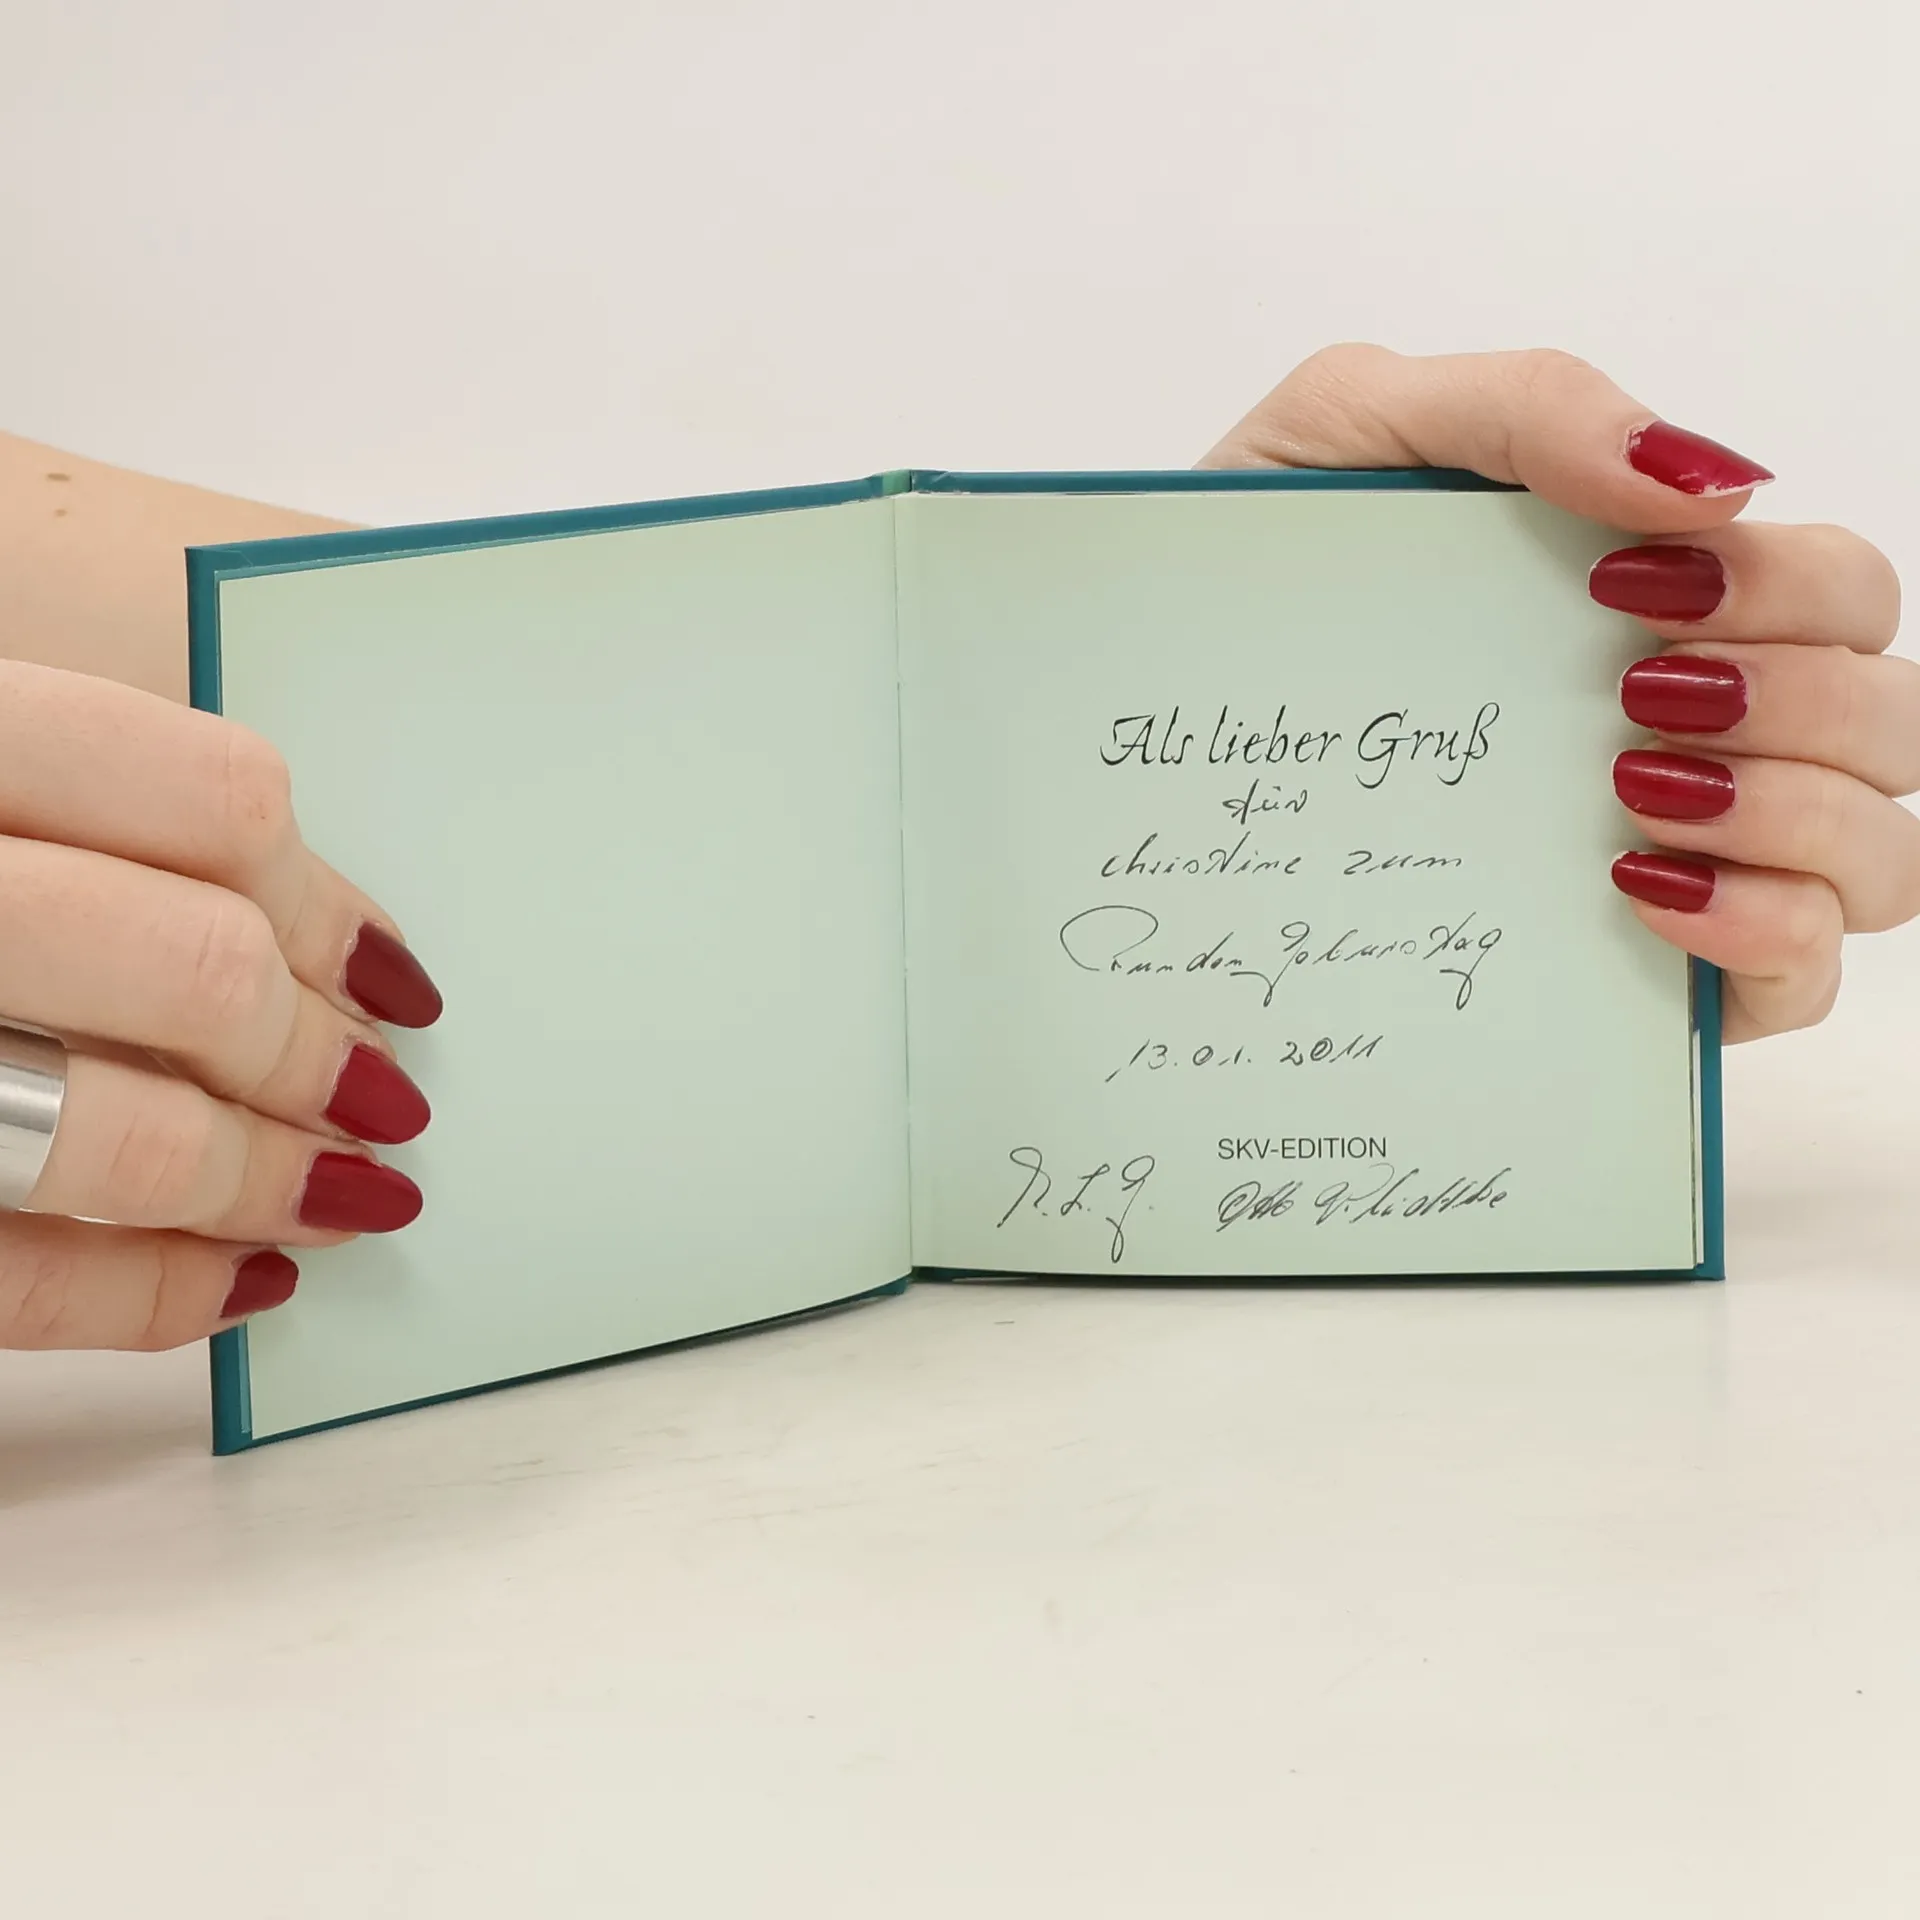 Als lieber Gruß
für
Christine zum
Runden Geburtstag
13.01.2011
SKV-EDITION
M.L.G. Otto